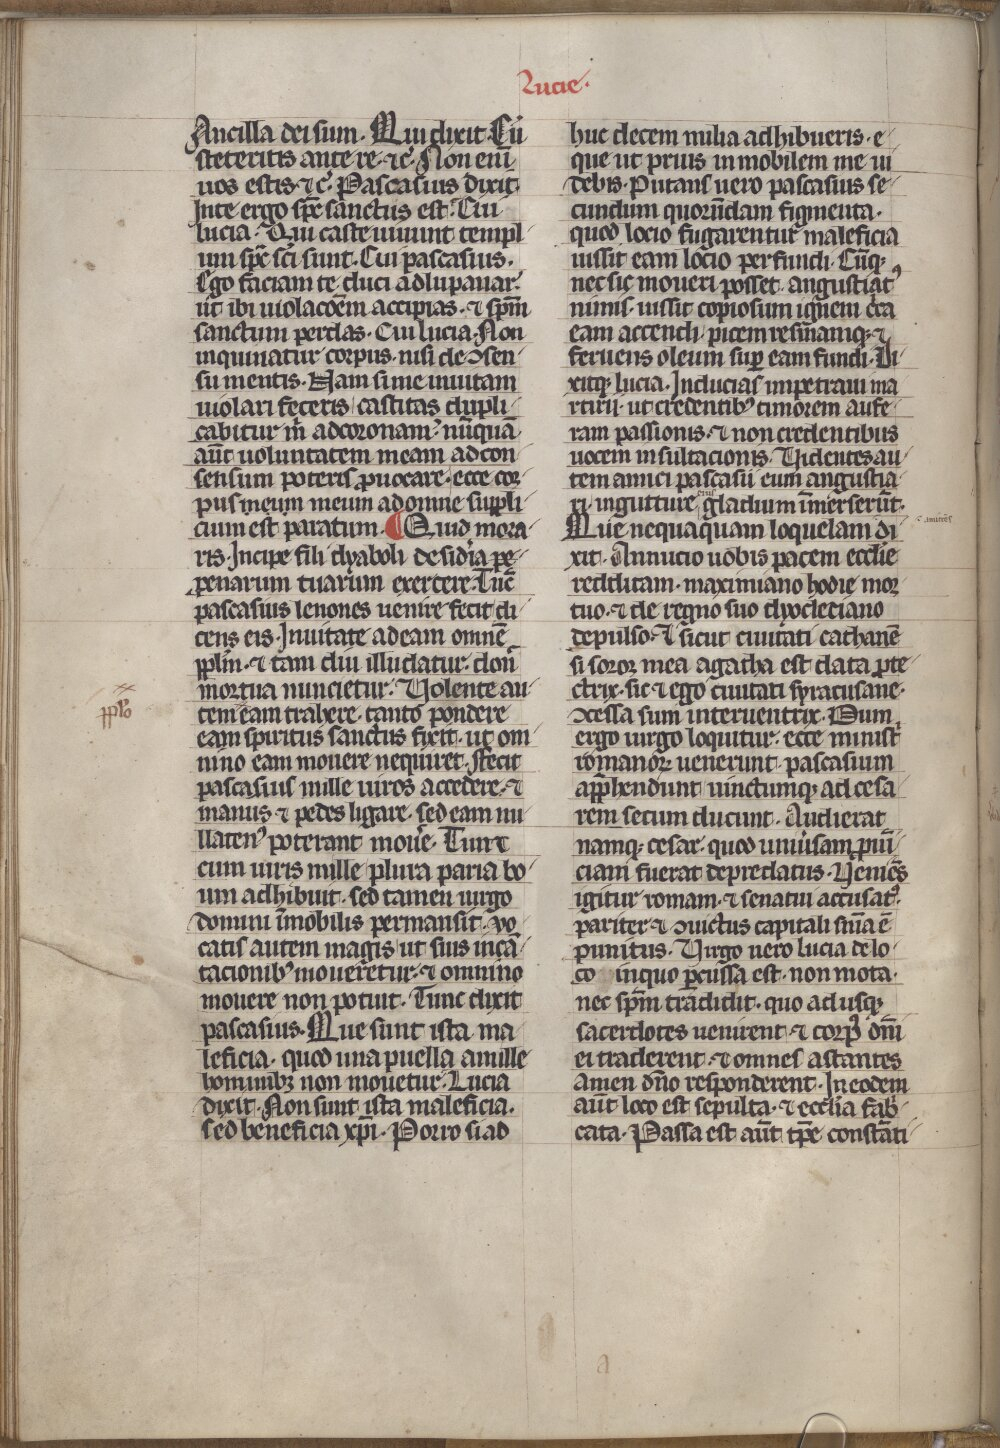 Lucie.
Ancilla dei sum. Qui dixit. Cũ
steteritis ante re. ⁊c̃. Non eni᷒
uos estis. ⁊c̃. Pascasius dixit
Inte ergo sp̃c sanctus est. Cui
lucia. Qui caste uiuunt templ
um sp̃c sc̃i sunt. Cui pascasius.
Ego faciam te duci adlupanar.
ut ibi uiolacõem accipias. ⁊ sp̃m
sanctum perdas. Cui lucia. Non
inquinatur corpus. nisi de ↄsen
su mentis. Nam si me inuitam
uiolari feceris castitas dupli
cabitur m̃ adcoronam. nũquã
aũt uoluntatem meam ad con
sensum poteris ꝓuocare. ecce cor
pus meum meum ad omne suppli
cium est paratum. Quid mora
ris. Incipe fili dyaboli desid̃ia pe
penarum tuarum exercere. Tũc
pascasius lenones uenire fecit di
cens eis. Inuitate ad eam omnẽ
ppl̃m. ⁊ tam diu illudatur. don̄
mortua nuncietur. Volente au
tem eam trahere. tanto pondere
eam spiritus sanctus fixit. ut om
nino eam mouere nequiret. Fecit
pascasius mille uiros accedere. ⁊
manus ⁊ pedes ligare. sed eam nu
llaten᷒ poterant mou̾e. Tunc
cum uiris mille plura paria bo
um adhibuit. sed tamen uirgo
domini im̃obilis permansit. vo
catis autem magis ut suis incã
tacionib᷒ moueretur. ⁊ omnino
mouere non potuit. Tunc dixit
pascasius. Que sunt ista ma
leficia. quod una puella a mille
hominibꝫ non mouetur. Lucia
dixit. Non sunt ista maleficia.
sed beneficia xp̃i. Porro si ad
huc decem milia adhibueris. e
que ut prius inmobilem me ui
debis. Putans uero pascasius se
cundum quorũdam figmenta.
quod locio fugarentur maleficia
iussit eam locio perfundi. Cũqꝫ
nec sic moueri posset. angustiat᷒
nimis. iussit copiosum ignem c̃ca
eam accendi picem resinamqꝫ. ⁊
feruens oleum sup̱ eam fundi. Di
xitqꝫ lucia. Inducias impetraui ma
rtirii. ut credentib᷒ timorem aufe
ram passionis. ⁊ non credentibus
uocem insultacionis. Videntes au
tem amici pascasii eum angustia
ri. ingutture eius gladium im̃erserũt.
Que nequaquam loquelam di
xit. Annucio uobis pacem ecclie
redditam. maximiano hodie mor
tuo. ⁊ de regno suo dyocletiano
depulso. ⁊ sicut ciuitati cathanẽ
si soror mea agatha est data ꝓte
ctrix. sic ⁊ ego ciuitati syracusane.
ↄcessa sum interuentrix. Dum
ergo uirgo loquitur. ecce minist̃
romanoꝝ uenerunt. pascasium
app̃hendunt uinctumqꝫ ad cesa
rem secum ducunt. Audierat
namqꝫ cesar. quod uniũsam ꝓuĩ
ciam fuerat depredatus. Veniẽs
igitur romam. ⁊ senatui accusat᷒.
pariter ⁊ ↄuictus capitali sn̄ia ẽ
punitus. Virgo uero lucia de lo
co inquo p̱cussa est. non mota.
nec sp̃m tradidit. quo ad usqꝫ
sacerdotes uenirent. ⁊ corp᷒ dñi
ei traderent. ⁊ omnes astantes
amen dño responderent. In eodem
aũt loco est sepulta. ⁊ ecclĩa fab
cata. Passa est aũt tp̃e constãti